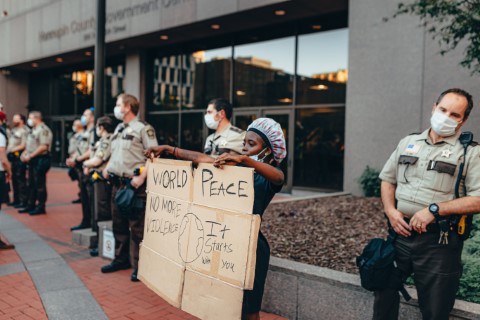 Hennepin County Government Center
WORLD PEACE
NO MORE
VIOLENCE
It
Starts
with you